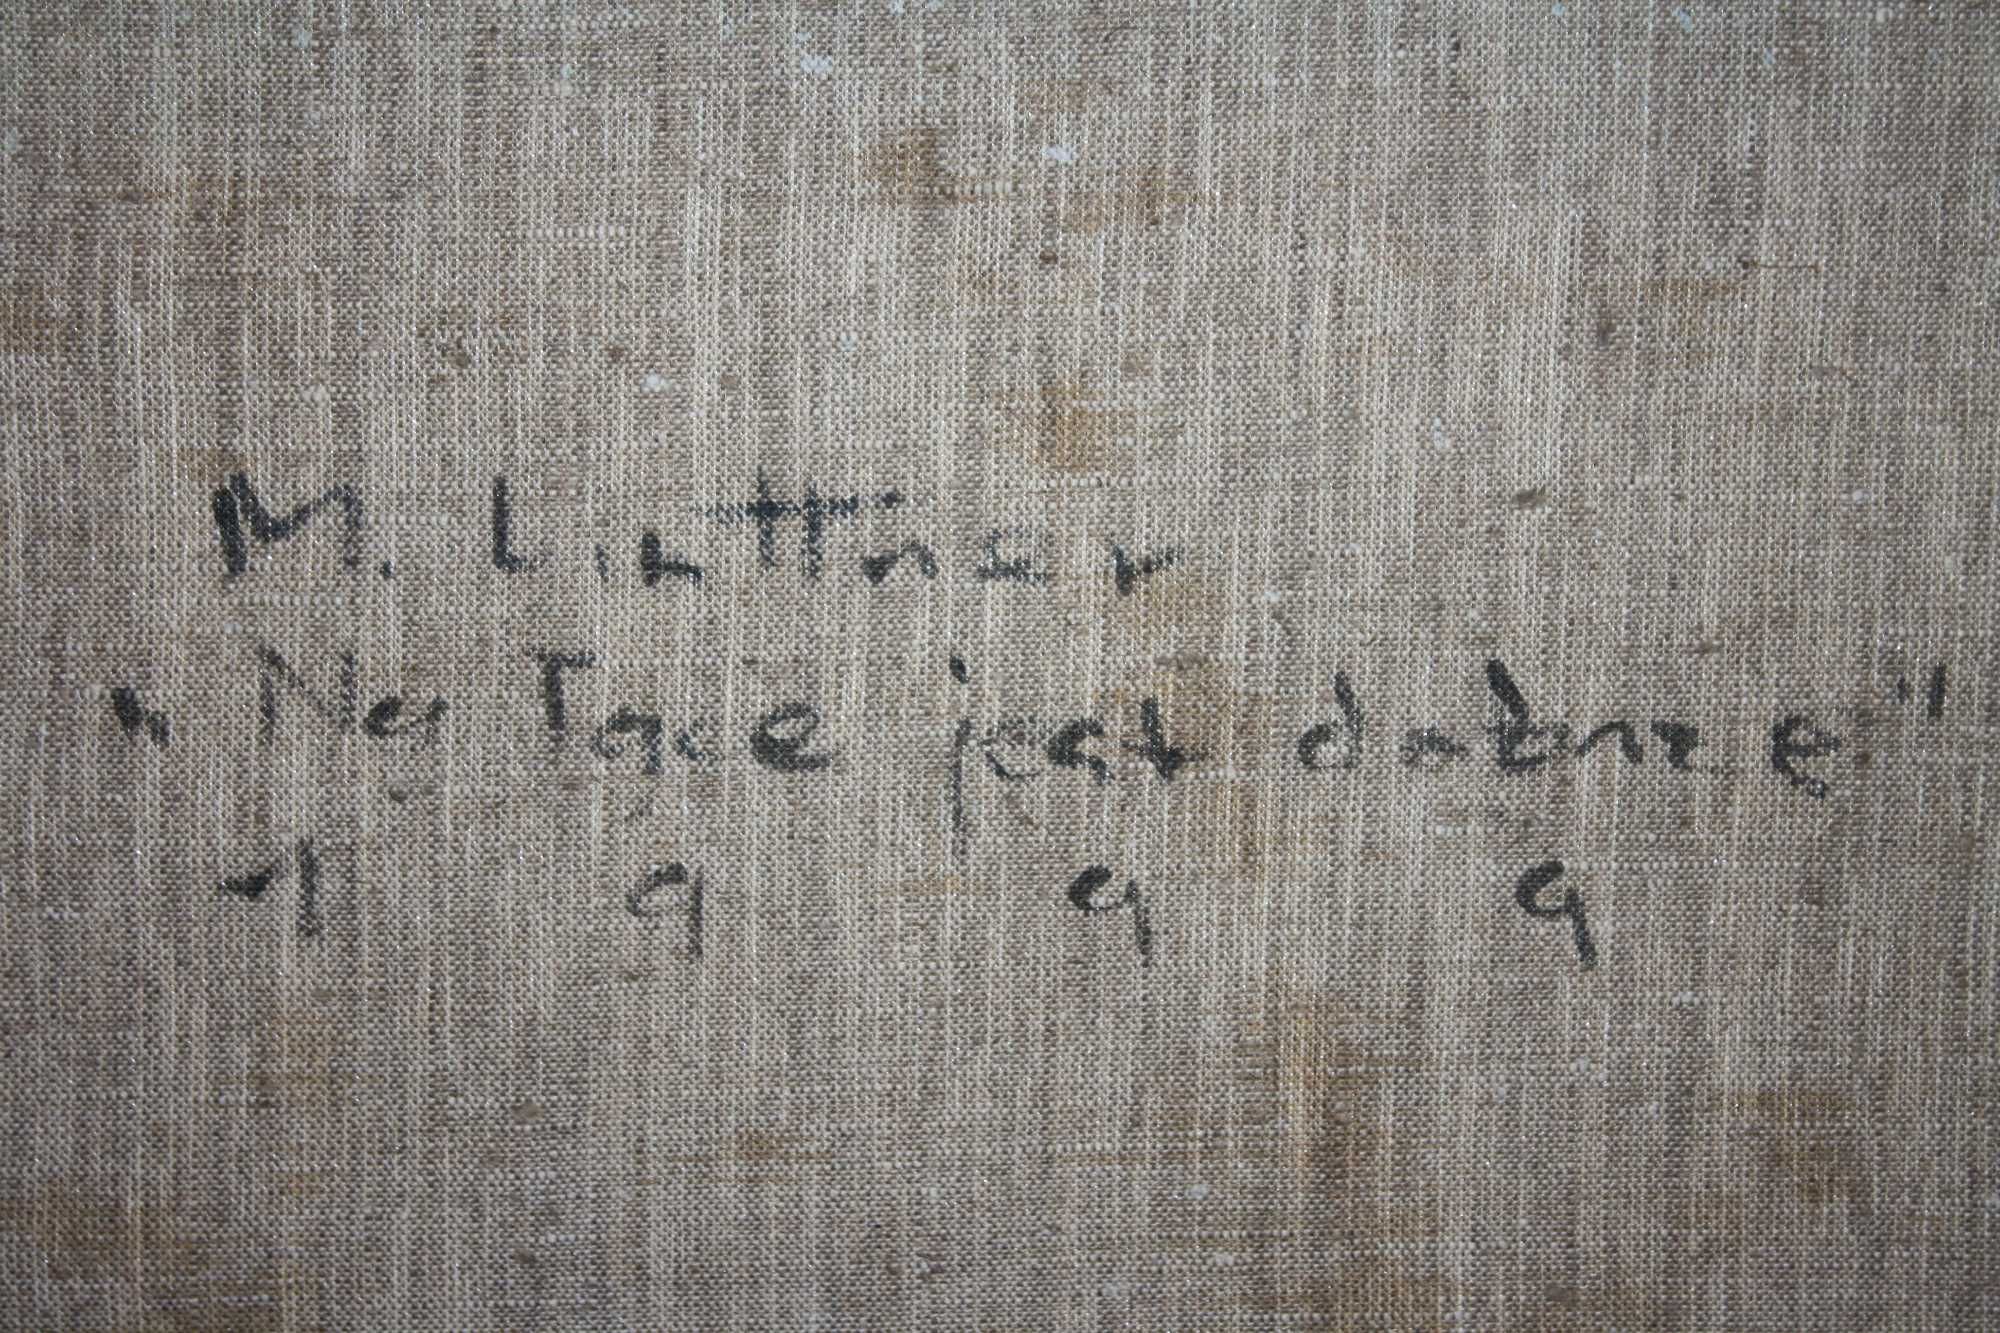 M. Littner
„Na Tacie jest dobrze"
1 9 9 9